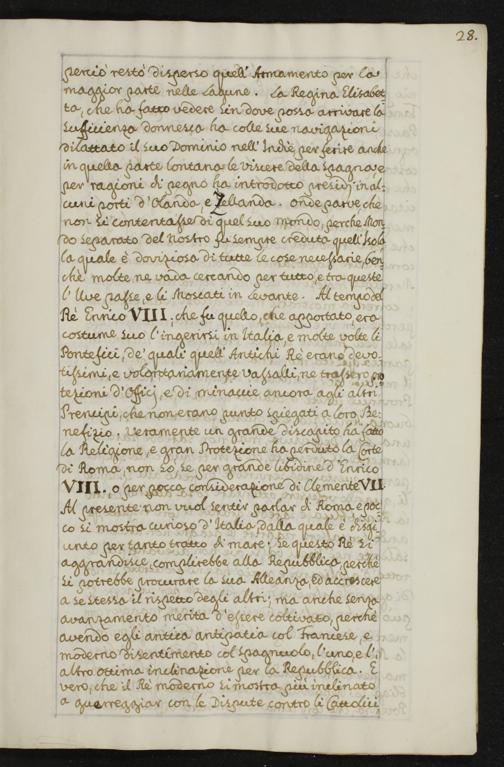 28.
perciò restò disperso quell'Armamento per la
maggior parte nelle Lagune. La Regina Elisabet-
ta, che ha fatto vedere sin dove possa arrivare la
sufficienza donnesca ha colle sue navigazioni
dilattato il suo Dominio nell'Indie per ferire anche
in quella parte lontana le viscere della Spagna, e
per ragioni di pegno ha introdotto presidj in al-
cuni porti d'Olanda, e Zellanda. onde pare che
non si contentasse di quel suo mondo, perche Mon-
do separato del nostro fu sempre creduta quell'Isola
la quale è doviziosa di tutte le cose necessarie, ben-
chè molte ne vada cercando per tutto, e tra queste
l'Uve passe, e li Moscati in Levante. Al tempo del
Rè Enrico VIII, che fu quello, che apportato, era
costume suo l'ingerirsi in Italia, e molte volte li
Pontefici, de' quali quell'Antichi Rè erano devo-
tissimi, e volontariamente vassalli, ne trassero pro
tezioni d'Officj, e di minaccie ancora agli altri
Prencipi, che non erano punto spiegati a loro Be-
nefizio. Veramente un grande discapito ha fatto
la Religione, e gran Protezione ha perduto la Corte
di Roma, non so, se per grande libidine d'Enrico
VIII. o per pocca considerazione di Clemente VII
Al presente non vuol sentir parlar di Roma e poc-
co si mostra curioso d'Italia, dalla quale è disgi-
unto per tanto tratto di mare; se questo Rè si
aggrandisce, complirebbe alla Repubblica, perchè
si potrebbe procurare la sua Alleanza, ed accrescere
a se stessa il rispetto degli altri; ma anche senza
avanzamento merita d'essere coltivato, perchè
avendo egli antica antipatia col Francese, e
moderno disentimento col Spagnuolo, l'uno, e l'
altro ottima inclinazione per la Repubblica. E
vero, che il Rè moderno si mostra più inclinato
a guerreggiar con le Dispute contro li Cattolici